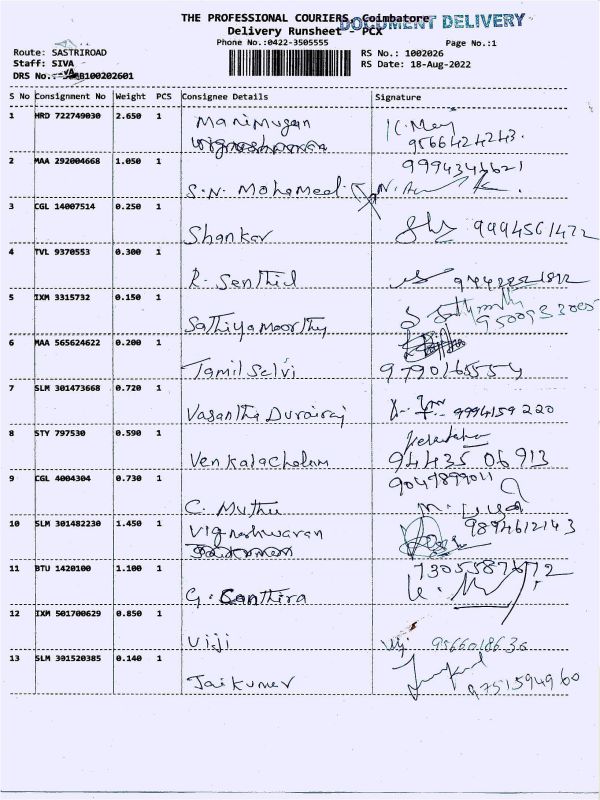 THE PROFESSIONAL COURIERS, Coimbatore
DOCUMENT DELIVERY
Delivery Runsheet PCX
Phone No.:0422-3505555
Page No.:1
Route: SASTRIROAD
RS No.: 1002026
Staff: SIVA
RS Date: 18-Aug-2022
DRS No.:
B100202601
S No Consignment No Weight PCS Consignee Details Signature
1 HRD 722749030 2.650 1 Manimugan K. Mani
9566424243.
2 MAA 292004668 1.050 1 9994344621
S.N. Mohamed
3 CGL 14007514 0.250 1
Shankar 9994561472
4 TVL 9370553 0.300 1
R. Senthil
5 IXM 3315732 0.150 1
Sathiya moorthy
6 MAA 565624622 0.200 1
Tamil Selvi 9790165554
7 SLM 301473668 0.720 1
Vasantha Durairaj 9994159220
8 STY 797530 0.590 1
Venkatachalam 94435 06913
9 CGL 4004304 0.730 1 9047899011
C. Muthu
10 SLM 301482230 1.450 1 Vigneshwaran 9894612143
11 BTU 1420100 1.100 1 7305587672
G.
12 IXM 501700629 0.850 1
Viji Viji 9566018636
13 SLM 301520385 0.140 1
Jaikumar 9751594960